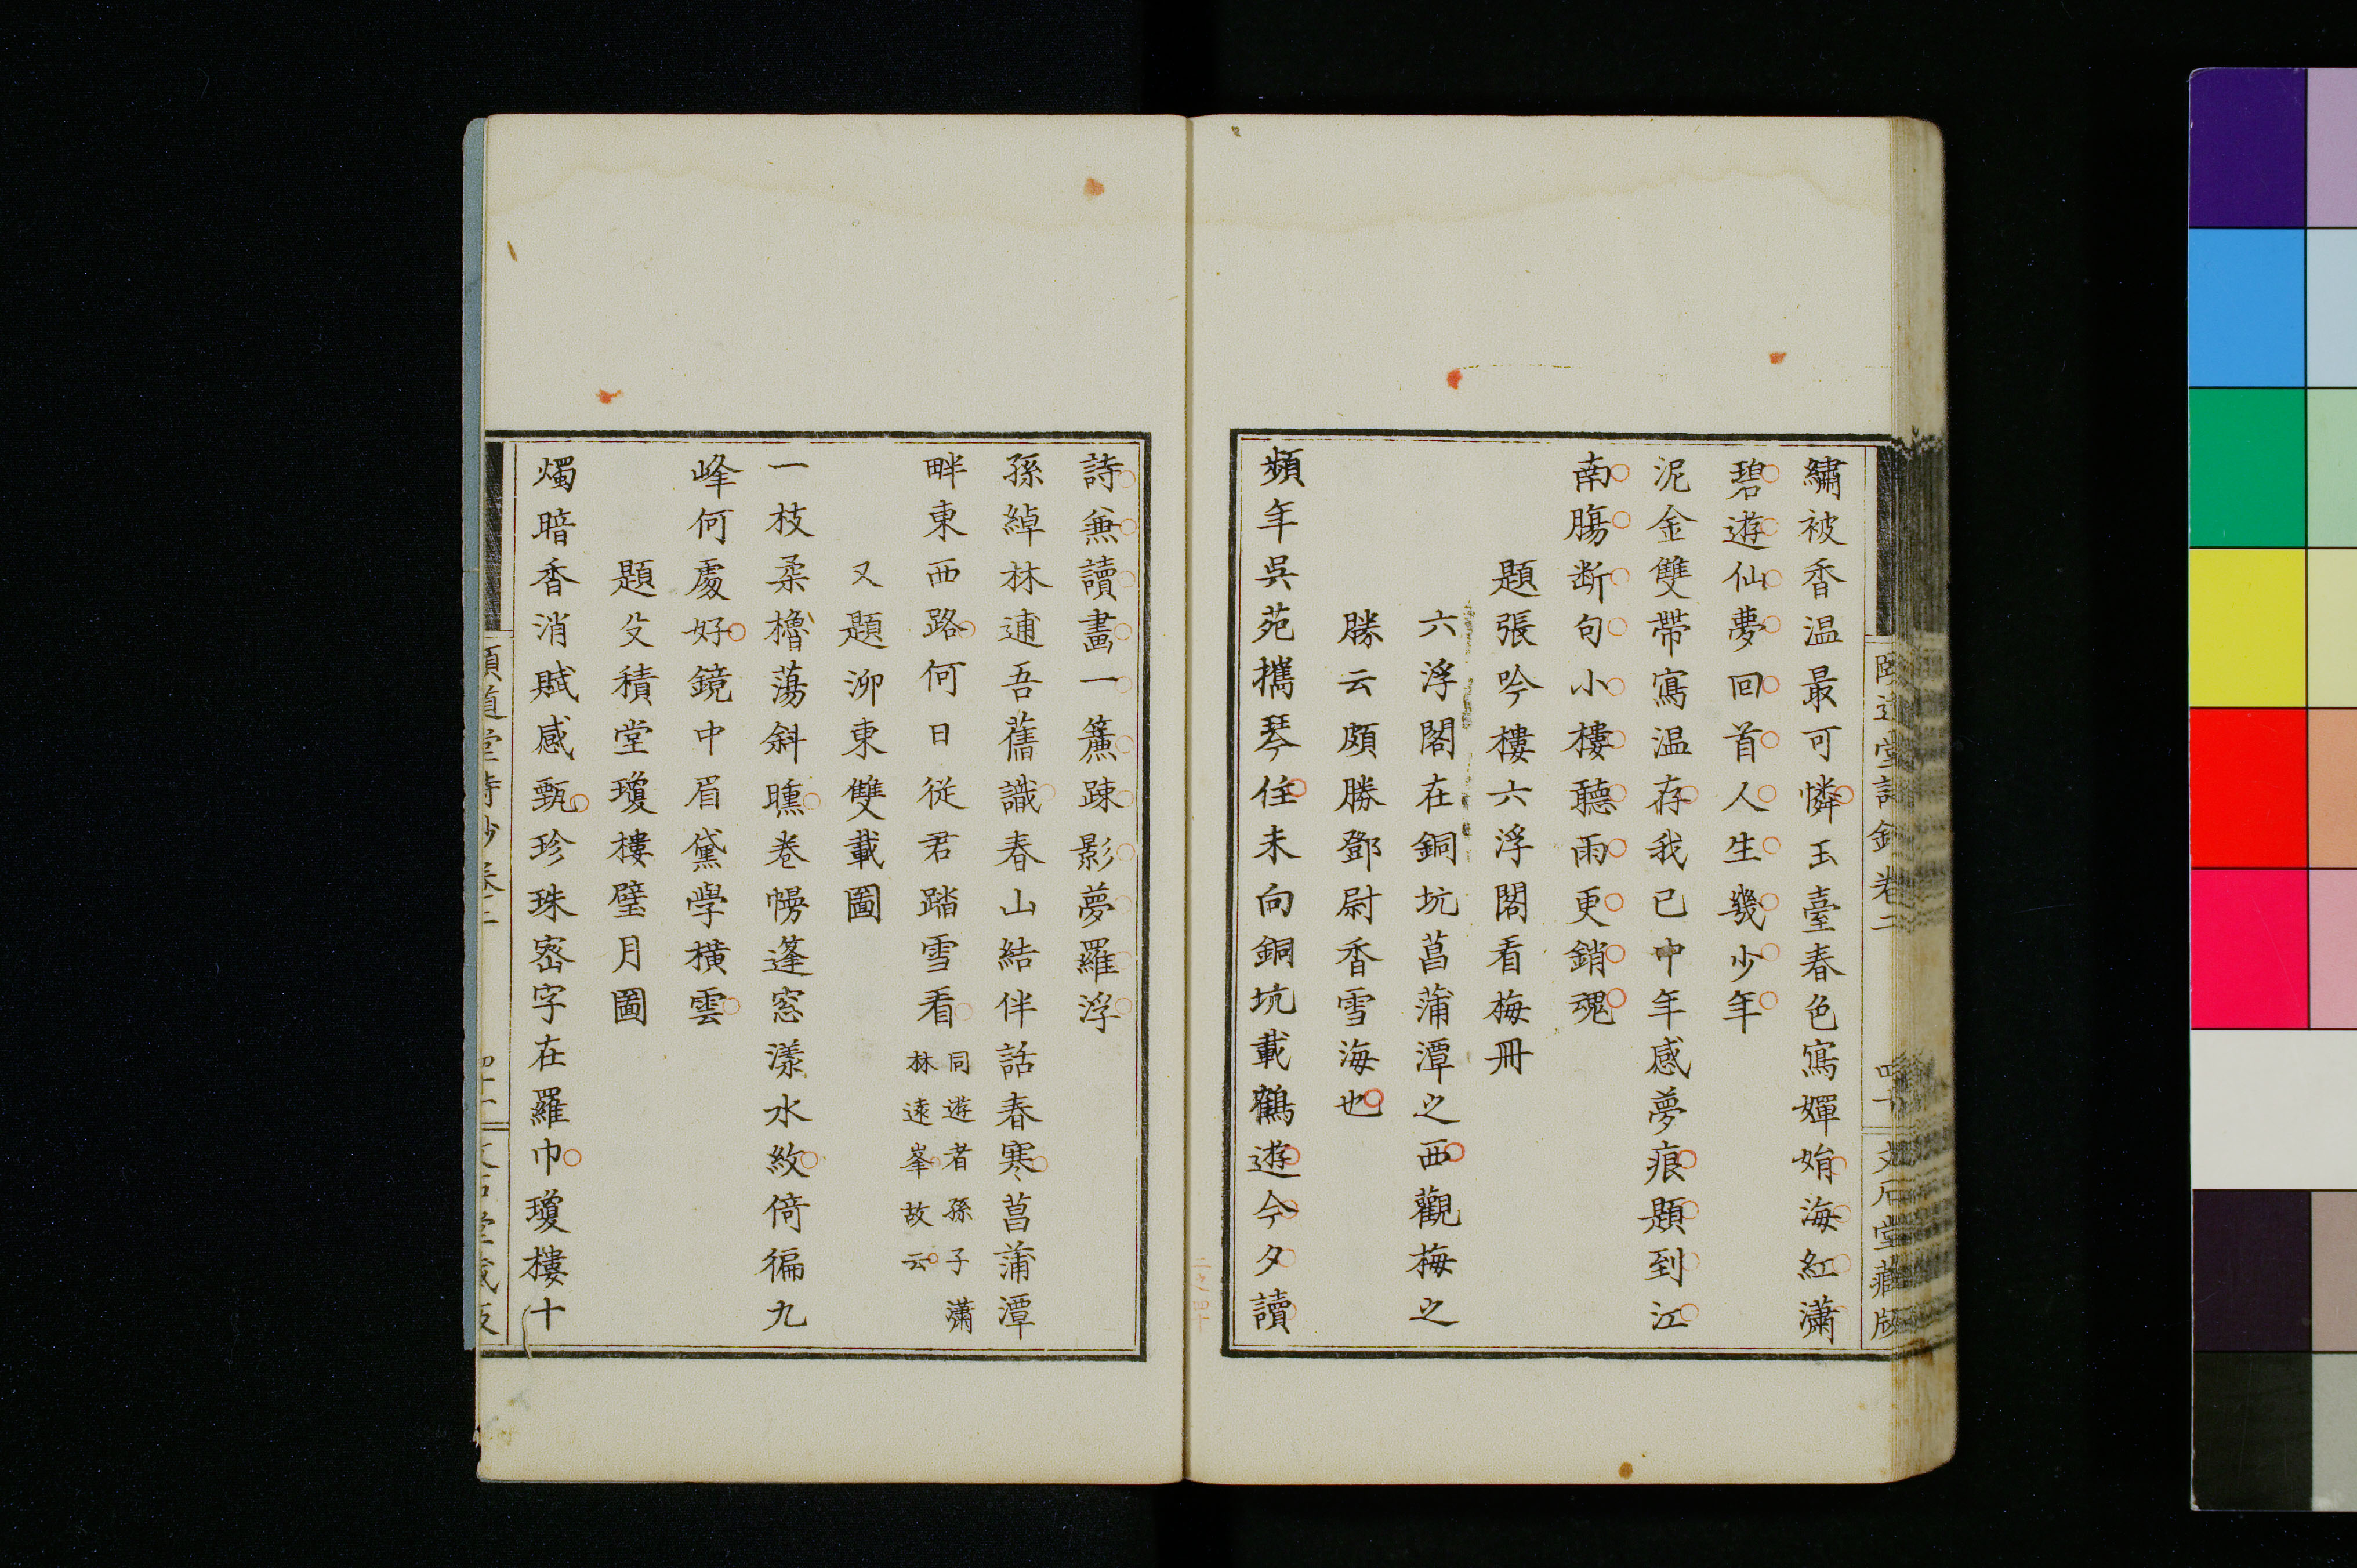 繡被香温最可憐玉臺春色寫嬋娟海紅瀟
碧遊仙夢回首人生幾少年
泥金雙帶寫温存我已中年感夢痕題到江
南腸断句小樓聽雨更銷魂
題張吟樓六浮閣看梅冊
六浮閣在銅坑菖蒲潭之西觀梅之
勝云頗勝鄧尉香雪海也
頻年吳苑攜琴住未向銅坑載鶴遊今夕讀
詩兼讀畫一簾疎影夢羅浮
孫綽林逋吾舊識春山結伴話春寒菖蒲潭
畔東西路何日從君踏雪看
同遊者孫子瀟
林遠峯故云
又題泖東雙載圖
一枝柔櫓蕩斜曛卷幔蓬窓漾水紋倚徧九
峰何處好鏡中眉黛學橫雲
題殳積堂瓊樓璧月圖
燭暗香消賦感甄珍珠密字在羅巾瓊樓十
頤道堂詩鈔卷二
文石堂藏版